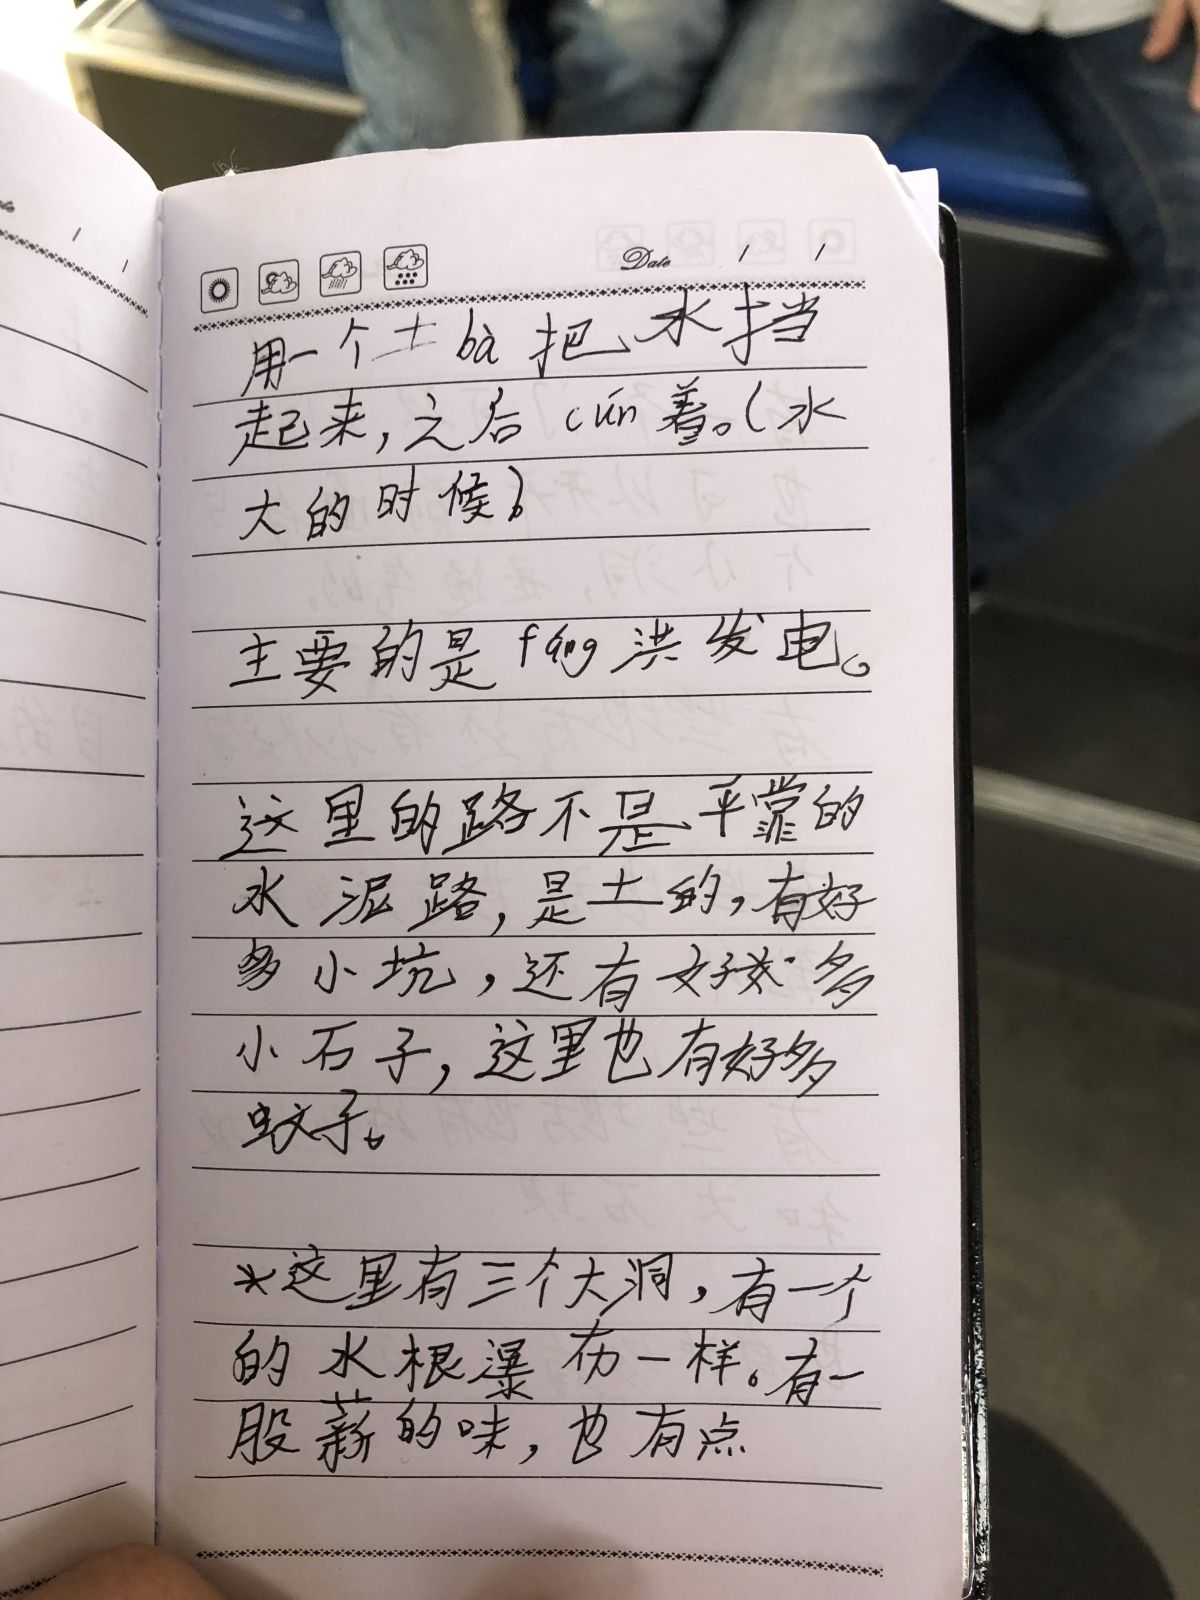 Date / /
用一个土bà把水挡
起来,之后cún着。(水
大的时候)
主要的是fáng洪发电。
这里的路不是平靠的
水泥路,是土的,有好
多小坑,还有好多
小石子,这里也有好多
蚊子。
*这里有三个大洞,有一个
的水根瀑布一样。有一
股薪的味,也有点